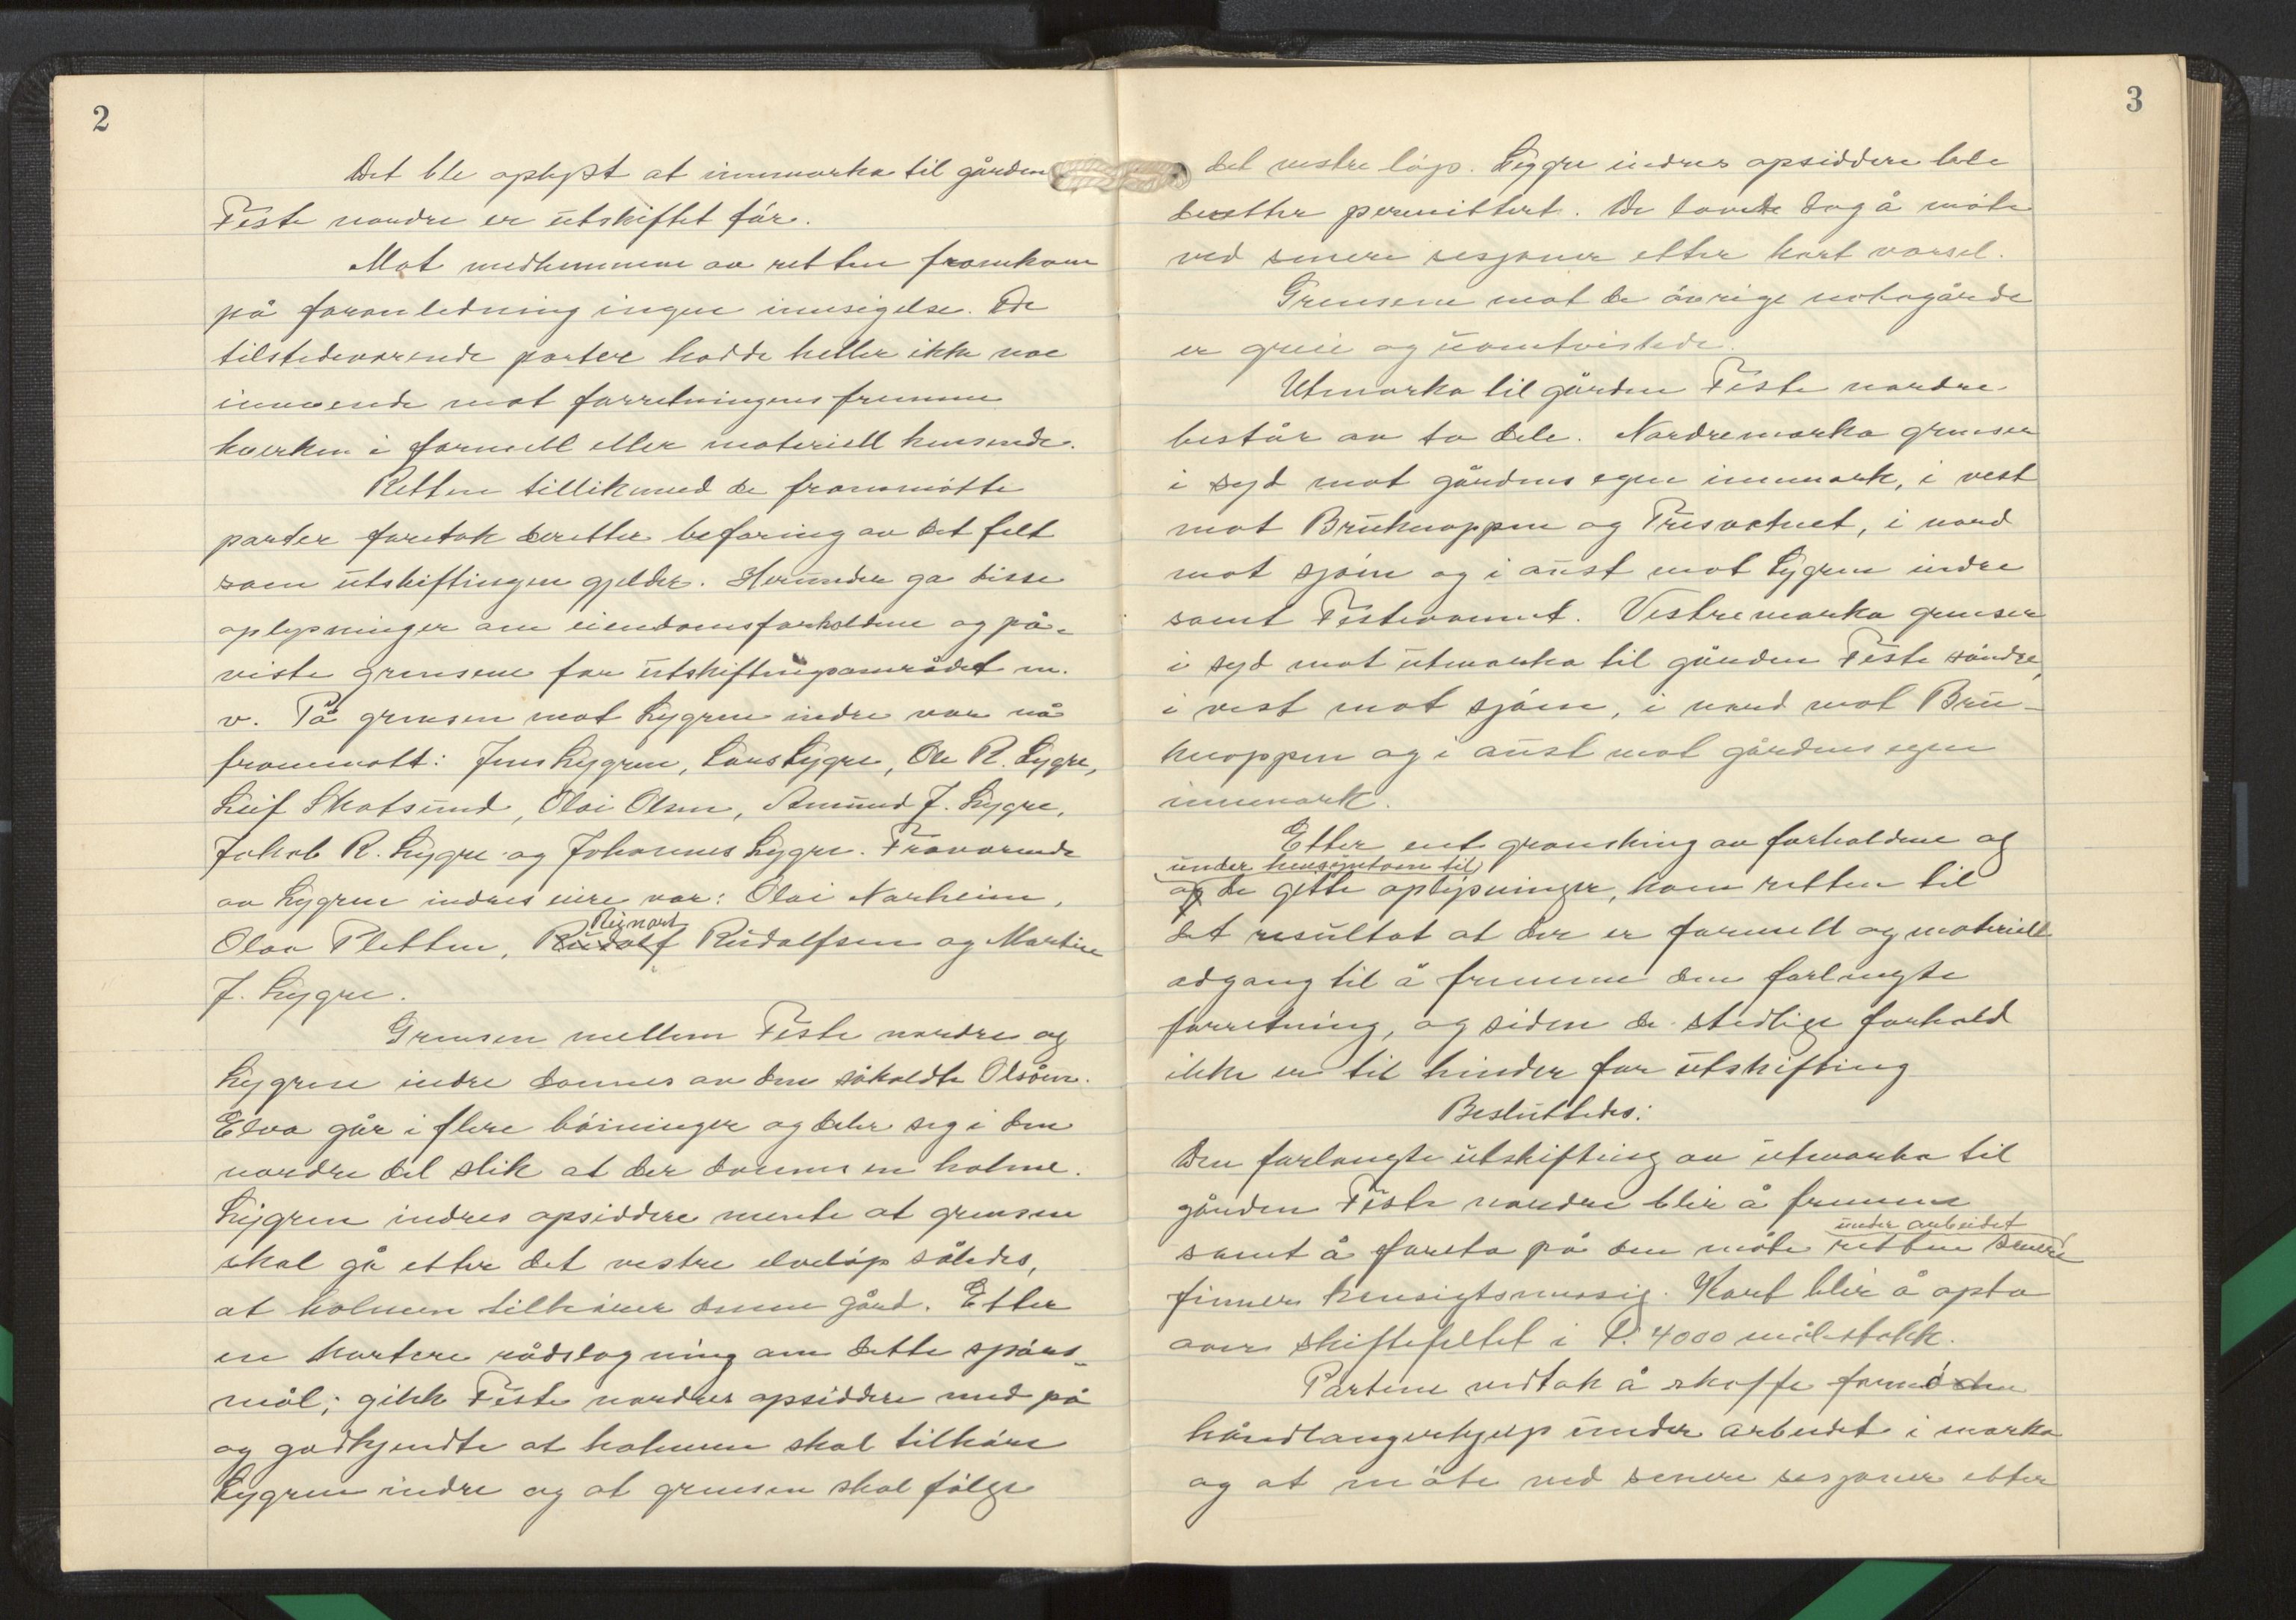 2
Det ble oplyst at innmarka til gården
Feste nordre er utskiftet för.
Mot medlemmene av retten framkom
på foranledning ingen innsigelse. De
tilstedeværende parter hadde heller ikke noe
innvende mot forretningens fremme
hverken i formell eller materiell henseende.
Retten tillikemed de frammötte
parter foretok deretter befaring av det felt
som utskiftingen gjelder. Herunder ga disse
oplysninger om eiendomsforholdene og på-
viste grensene for utskiftingsområdet m.
v. På grensen mot Lygren indre var nå
frammött: Jens Lygren, Lars Lygre, Ole R. Lygre,
Leif Skatsund, Olai Olsen, Amund J. Lygre,
Jakob R. Lygre og Johannes Lygre. Fraværende
av Lygren indres eiere var: Olai Narheim,
Reinart
Olav Pletten, Rudolf Rudolfsen og Martin
J. Lygre.
Grensen mellem Feste nordre og
Lygren indre dannes av den såkaldte Olsåen.
Elva går i flere böininger og deler seg i den
nordre del slik at der dannes en holme.
Lygren indres opsiddere mente at grensen
skal gå etter det vestre elvelöp således,
at holmen tilhörer denne gård. Etter
en kortere rådslagning om dette spörs-
mål; gikk Feste nordres opsiddere med på
og godkjendte at holmen skal tilhöre
Lygren indre og at grensen skal fölge
3
det vestre löp. Lygre indres opsiddere ble
deretter permittert. De lovde dog å möte
ved senere sesjoner etter kort varsel.
Grensene mot de övrige nabogårde
er greie og uomtvistede.
Utmarka til gården Feste nordre
består av to dele. Nordremarka grenser
i syd mot gårdens egen innmark, i vest
mot Bruknappen og Prisvatnet, i nord
mot sjöen og i aust mot Lygren indre
samt Festevannet. Vestremarka grenser
i syd mot utmarka til gården Feste söndre,
i vest mot sjöen, i nord mot Bru-
knappen og i aust mot gårdens egen
innmark.
Etter endt granskning av forholdene og
under hensyntaen til
av de gitte oplysninger, kom retten til
det resultat at der er formell og materiell
adgang til å fremme den forlangte
forretning, og siden de stedlige forhold
ikke er til hinder for utskifting
Besluttedes:
Den forlangte utskifting av utmarka til
gården Feste nordre blir å fremme
under arbeidet
samt å foreta på den måte retten senere
finner hensigtsmessig. Kart blir å opta
over skiftefeltet i 1:4000 målestokk.
Partene vedtok å skaffe fornöden
håndlangerhjelp under arbeidet i marka
og at möte ved senere sesjoner etter